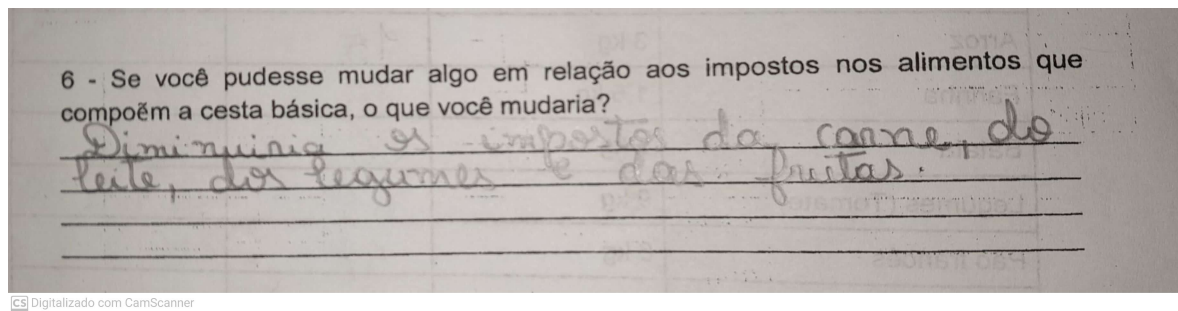 6 - Se você pudesse mudar algo em relação aos impostos nos alimentos que
compoẽm a cesta básica, o que você mudaria?
Diminuiria os impostos da carne, do
leite, dos legumes e das frutas.
CS Digitalizado com CamScanner